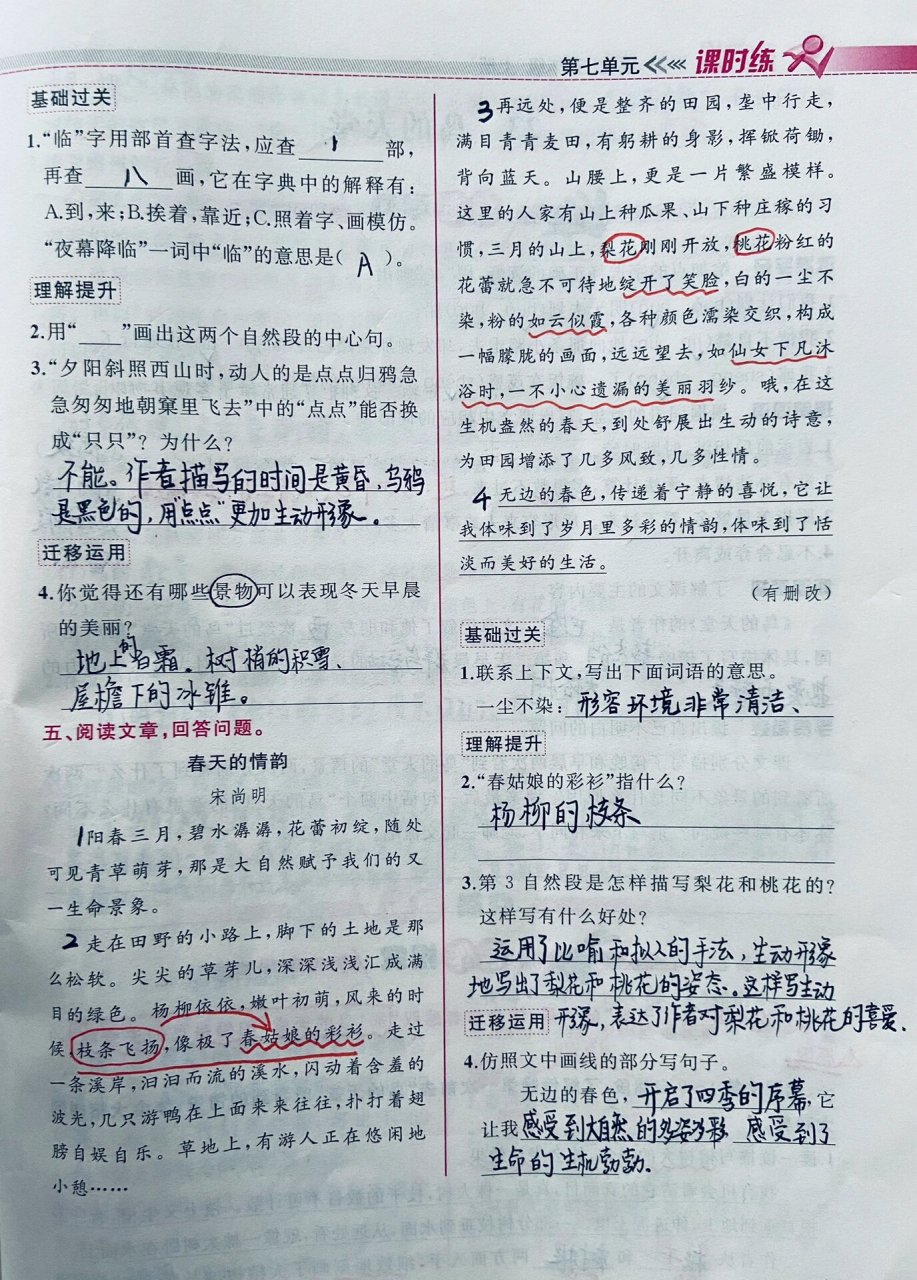 第七单元 课时练
基础过关
1.“临”字用部首查字法，应查丨部，
再查八画，它在字典中的解释有：
A.到，来；B.挨着，靠近；C.照着字、画模仿。
“夜幕降临”一词中“临”的意思是( A )。
理解提升
2.用“____”画出这两个自然段的中心句。
3.“夕阳斜照西山时，动人的是点点归鸦急
急匆匆地朝窠里飞去”中的“点点”能否换
成“只只”？为什么？
不能。作者描写的时间是黄昏，乌鸦
是黑色的，用“点点”更加生动形象。
迁移运用
4.你觉得还有哪些景物可以表现冬天早晨
的美丽？
地上的白霜、树梢的积雪、
屋檐下的冰锥。
五、阅读文章，回答问题。
春天的情韵
宋尚明
1阳春三月，碧水潺潺，花蕾初绽，随处
可见青草萌芽，那是大自然赋予我们的又
一生命景象。
2走在田野的小路上，脚下的土地是那
么松软。尖尖的草芽儿，深深浅浅汇成满
目的绿色。杨柳依依，嫩叶初萌，风来的时
候，枝条飞扬，像极了春姑娘的彩衫。走过
一条溪岸，汩汩而流的溪水，闪动着含羞的
波光，几只游鸭在上面来来往往，扑打着翅
膀自娱自乐。草地上，有游人正在悠闲地
小憩……
3再远处，便是整齐的田园，垄中行走，
满目青青麦田，有躬耕的身影，挥锨荷锄，
背向蓝天。山腰上，更是一片繁盛模样。
这里的人家有山上种瓜果、山下种庄稼的习
惯，三月的山上，梨花刚刚开放，桃花粉红的
花蕾就急不可待地绽开了笑脸，白的一尘不
染，粉的如云似霞，各种颜色濡染交织，构成
一幅朦胧的画面，远远望去，如仙女下凡沐
浴时，一不小心遗漏的美丽羽纱。哦，在这
生机盎然的春天，到处舒展出生动的诗意，
为田园增添了几多风致，几多性情。
4无边的春色，传递着宁静的喜悦，它让
我体味到了岁月里多彩的情韵，体味到了恬
淡而美好的生活。
（有删改）
基础过关
1.联系上下文，写出下面词语的意思。
一尘不染：形容环境非常清洁、
理解提升
2.“春姑娘的彩衫”指什么？
杨柳的枝条
3.第3自然段是怎样描写梨花和桃花的？
这样写有什么好处？
运用了比喻和拟人的手法，生动形象
地写出了梨花和桃花的姿态。这样写生动
迁移运用 形象，表达了作者对梨花和桃花的喜爱。
4.仿照文中画线的部分写句子。
无边的春色，开启了四季的序幕，它
让我感受到大自然的多姿多彩，感受到了
生命的生机勃勃。